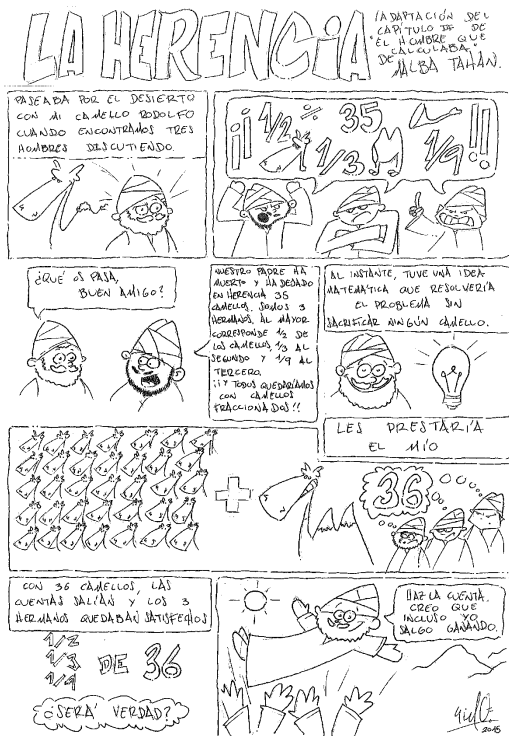 LA HERENCIA
(ADAPTACIÓN DEL
CAPÍTULO III DE
"EL HOMBRE QUE
CALCULABA"
DE MALBA TAHAN.
PASEABA POR EL DESIERTO
CON MI CAMELLO RODOLFO
CUANDO ENCONTRAMOS TRES
HOMBRES DISCUTIENDO.
¡¡ 1/2 ÷ 35
1/3 1/9 !!
¿QUÉ OS PASA,
BUEN AMIGO?
NUESTRO PADRE HA
MUERTO Y HA DEJADO
EN HERENCIA 35
CAMELLOS. SOMOS 3
HERMANOS. AL MAYOR
CORRESPONDE 1/2 DE
LOS CAMELLOS, 1/3 AL
SEGUNDO Y 1/9 AL
TERCERO.
¡¡Y TODOS QUEDARÍAMOS
CON CAMELLOS
FRACCIONADOS!!
AL INSTANTE, TUVE UNA IDEA
MATEMÁTICA QUE RESOLVERÍA
EL PROBLEMA SIN
SACRIFICAR NINGÚN CAMELLO.
LES PRESTARÍA
EL MÍO
+
36
CON 36 CAMELLOS, LAS
CUENTAS SALÍAN Y LOS 3
HERMANOS QUEDABAN SATISFECHOS
1/2
1/3 DE 36
1/9
¿SERÁ VERDAD?
HAZ LA CUENTA.
CREO QUE
INCLUSO YO
SALGO GANANDO.
2015